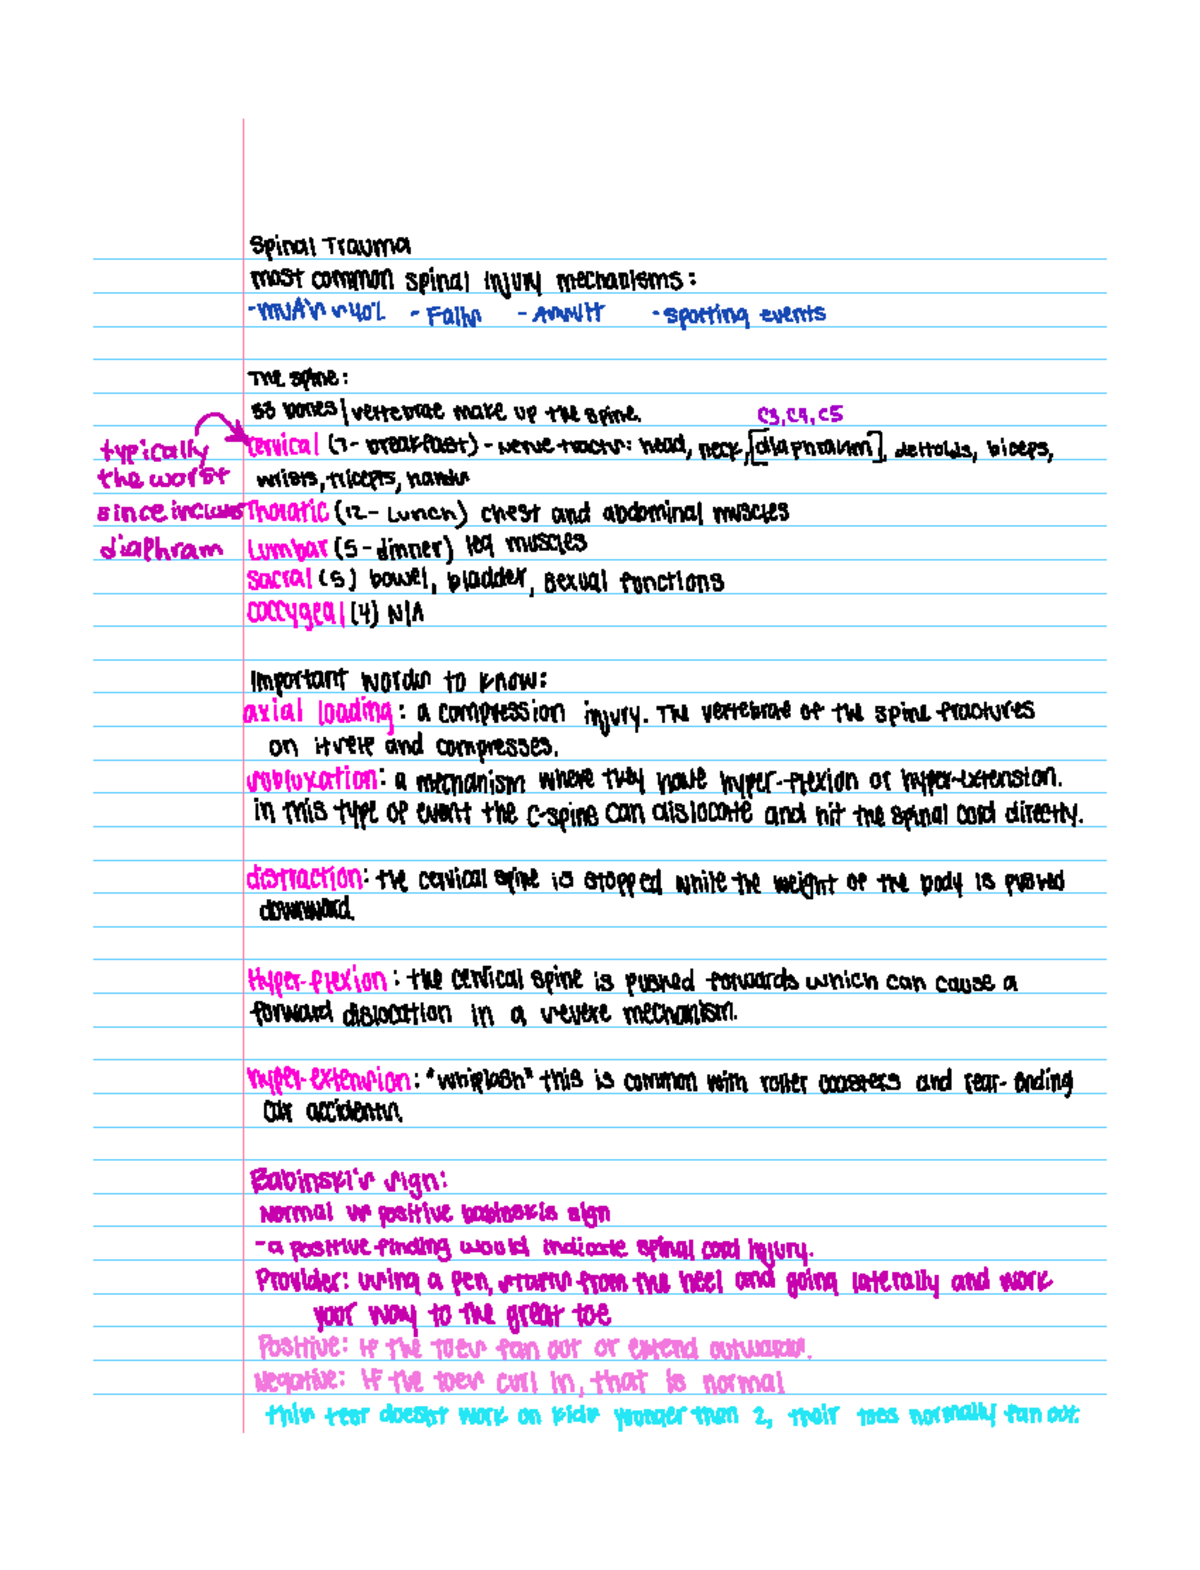 Spinal Trauma
most common spinal injury mechanisms:
-MVA's ~40% - Falls - Assault - sporting events
The spine:
33 bones/vertebrae make up the spine.
C3, C4, C5
cervical (7- breakfast) - nerve tracts: head, neck, [diaphragm], deltoids, biceps,
wrists, triceps, hands
typically
the worst
since includes
diaphram
Thoracic (12- Lunch) chest and abdominal muscles
Lumbar (5-dinner) leg muscles
Sacral (5) bowel, bladder, sexual functions
Coccygeal (4) N/A
Important words to know:
axial loading: a compression injury. The vertebrae of the spine fractures
on itself and compresses.
subluxation: a mechanism where they have hyper-flexion or hyper-extension.
in this type of event the C-spine can dislocate and hit the spinal cord directly.
distraction: the cervical spine is stopped while the weight of the body is pushed
downward.
Hyper-flexion: the cervical spine is pushed forwards which can cause a
forward dislocation in a severe mechanism.
hyper-extension: "whiplash" this is common with roller coasters and rear-ending
car accidents.
Babinski's sign:
Normal vs positive babinskis sign
- a positive finding would indicate spinal cord injury.
Provider: using a pen, starts from the heel and going laterally and work
your way to the great toe
Positive: if the toes fan out or extend outwards.
Negative: if the toes curl in, that is normal
this test doesn't work on kids younger than 2, their toes normally fan out.